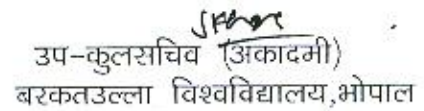 उप-कुलसचिव (अकादमी)
बरकतउल्ला विश्वविद्यालय,भोपाल